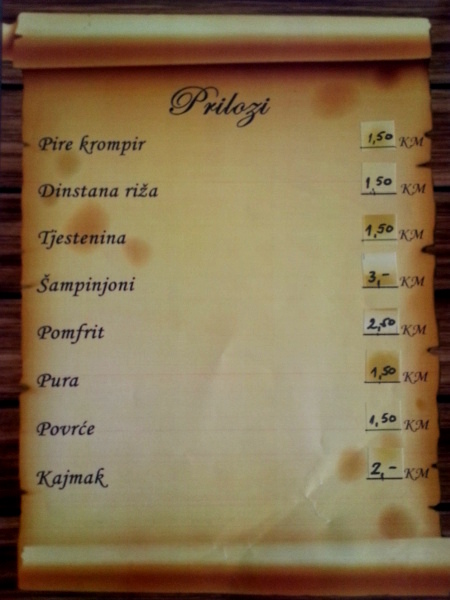 Prilozi
Pire krompir 1,50 KM
Dinstana riža 1,50 KM
Tjestenina 1,50 KM
Šampinjoni 3,- KM
Pomfrit 2,50 KM
Pura 1,50 KM
Povrće 1,50 KM
Kajmak 2,- KM